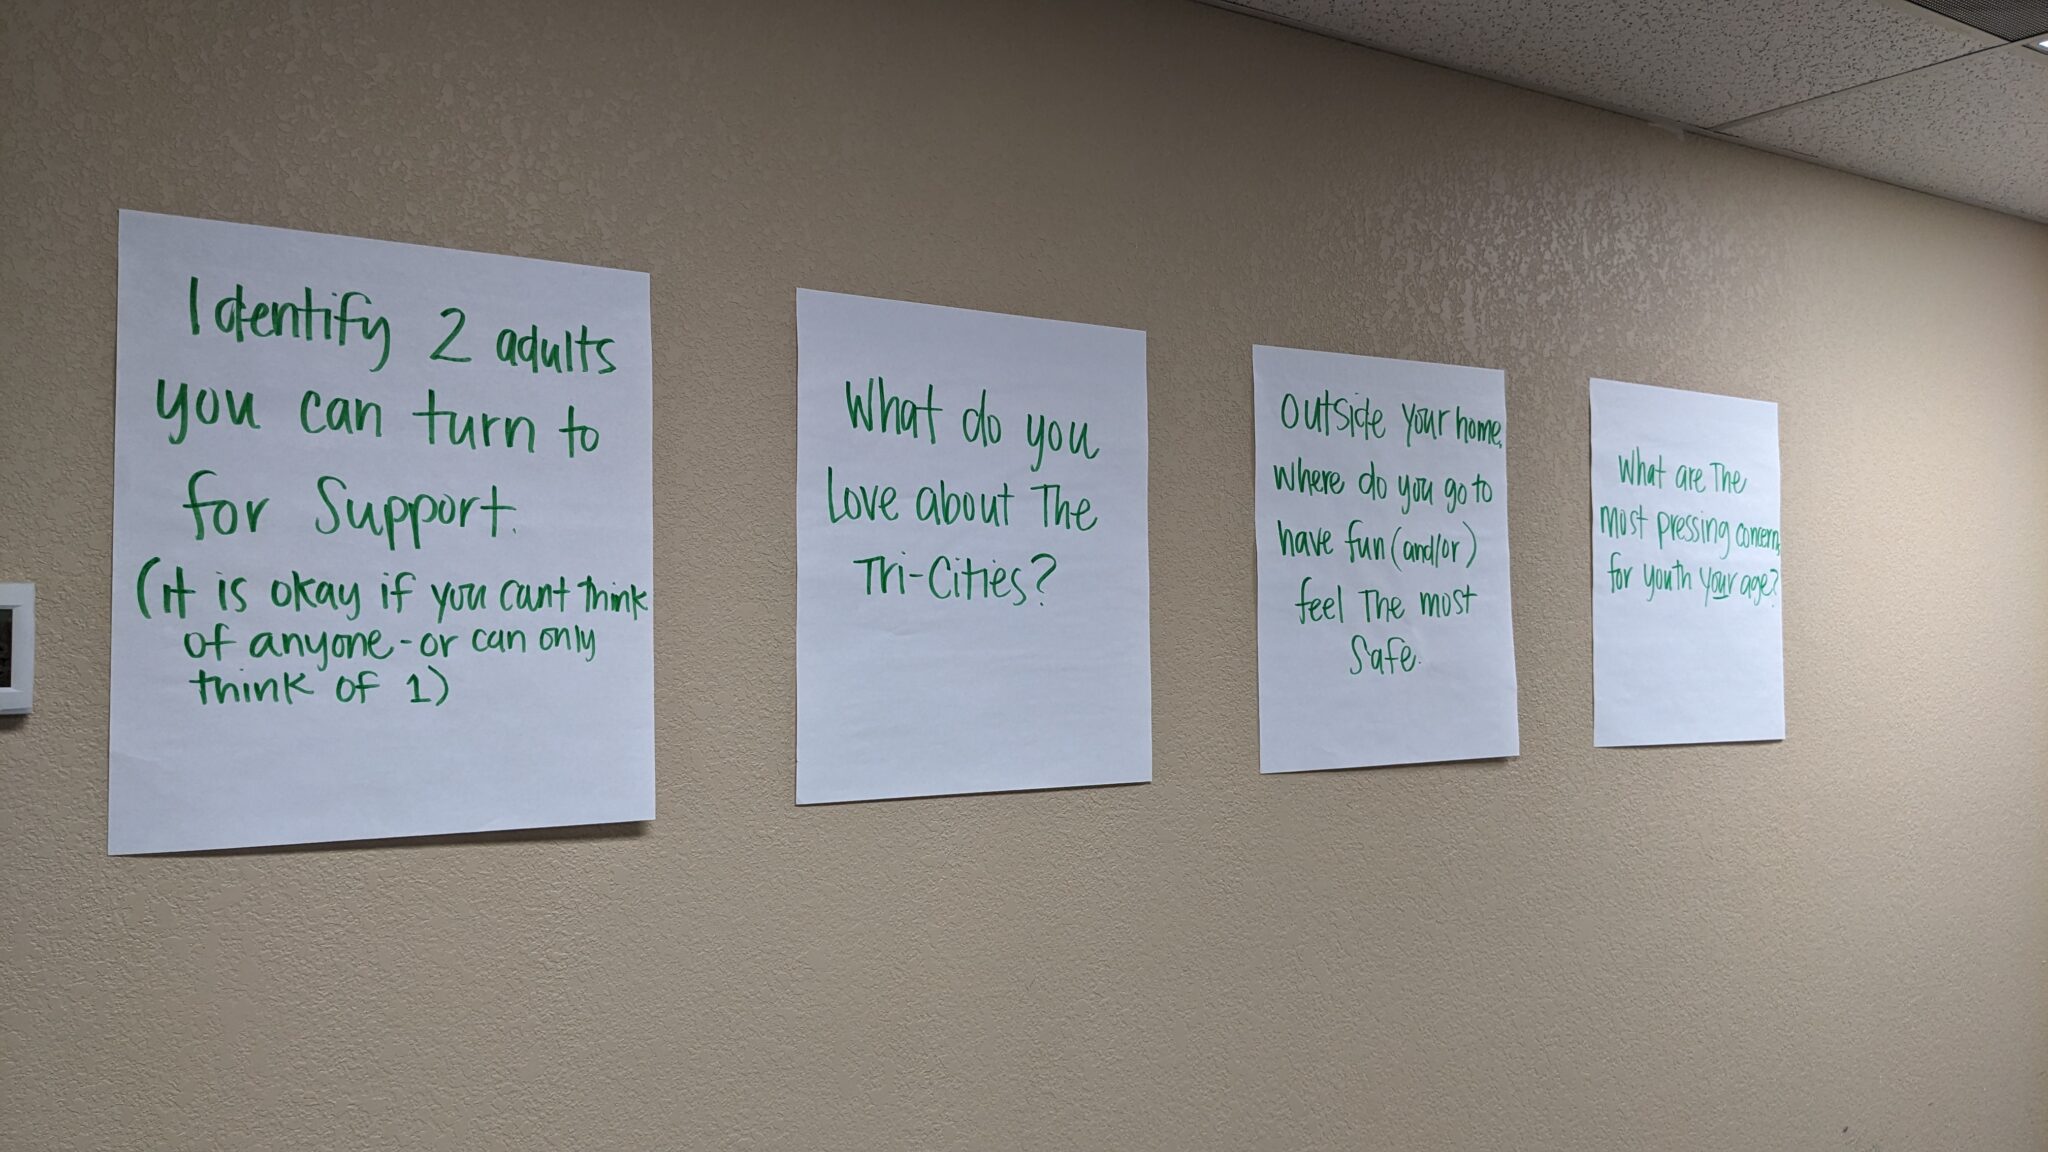 Identify 2 adults
you can turn to
for Support.
(it is okay if you cant think
of anyone - or can only
think of 1)
What do you
Love about The
Tri-Cities?
Outside your home,
where do you go to
have fun (and/or)
feel The most
Safe.
What are The
most pressing concerns
for youth your age?